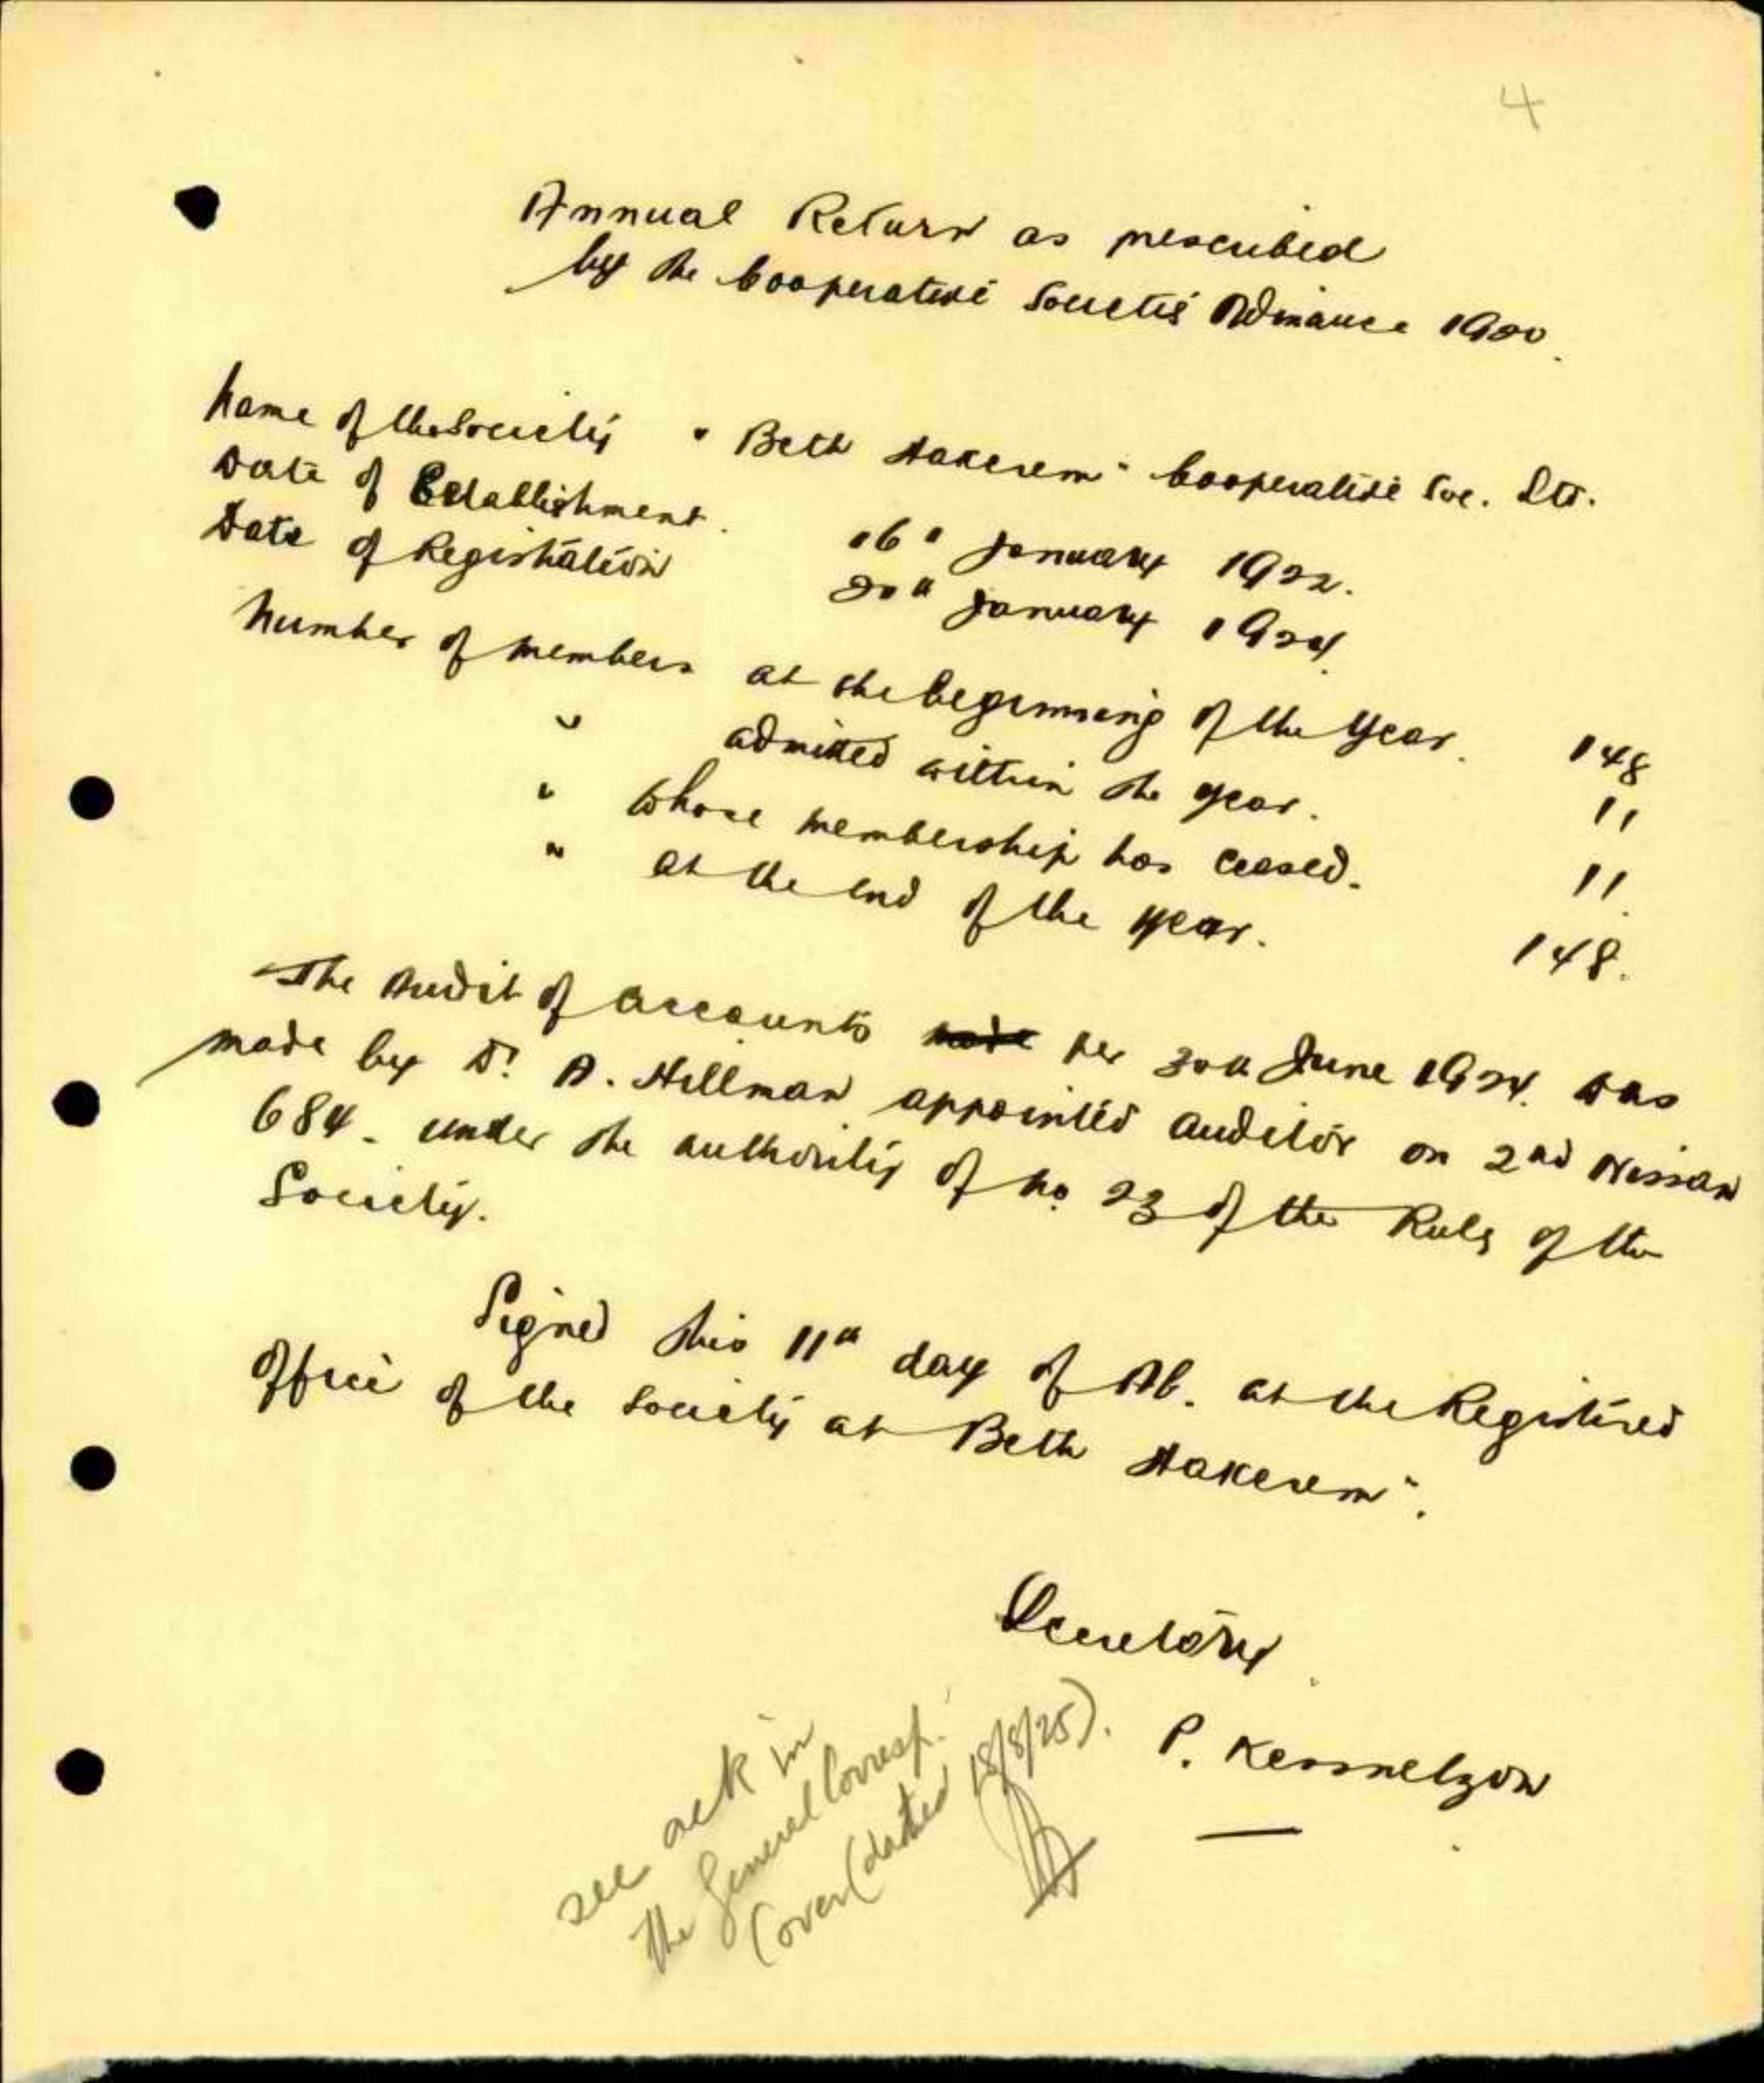 4
Annual Return as prescribed
by the Cooperative Societies Ordinance 1920.
Name of the Society "Beth Hakerem" Cooperative Soc. Ltd.
Date of Establishment. 16th January 1922.
Date of Registration 20th January 1924.
Number of members at the beginning of the year. 148
" admitted within the year. 11
" whose membership has ceased. 11.
" at the end of the year. 148.
The Audit of accounts made per 30th June 1924. was
made by Dr. A. Hillman appointed auditor on 2nd Nissan
684 - under the authority of No. 23 of the Rules of the
Society.
Signed this 11th day of Ab. at the Registered
office of the Society at Beth Hakerem".
Secretary.
P. Kessnelzon
see ack in
the General Corresp.
Cover (dated 18/8/25).